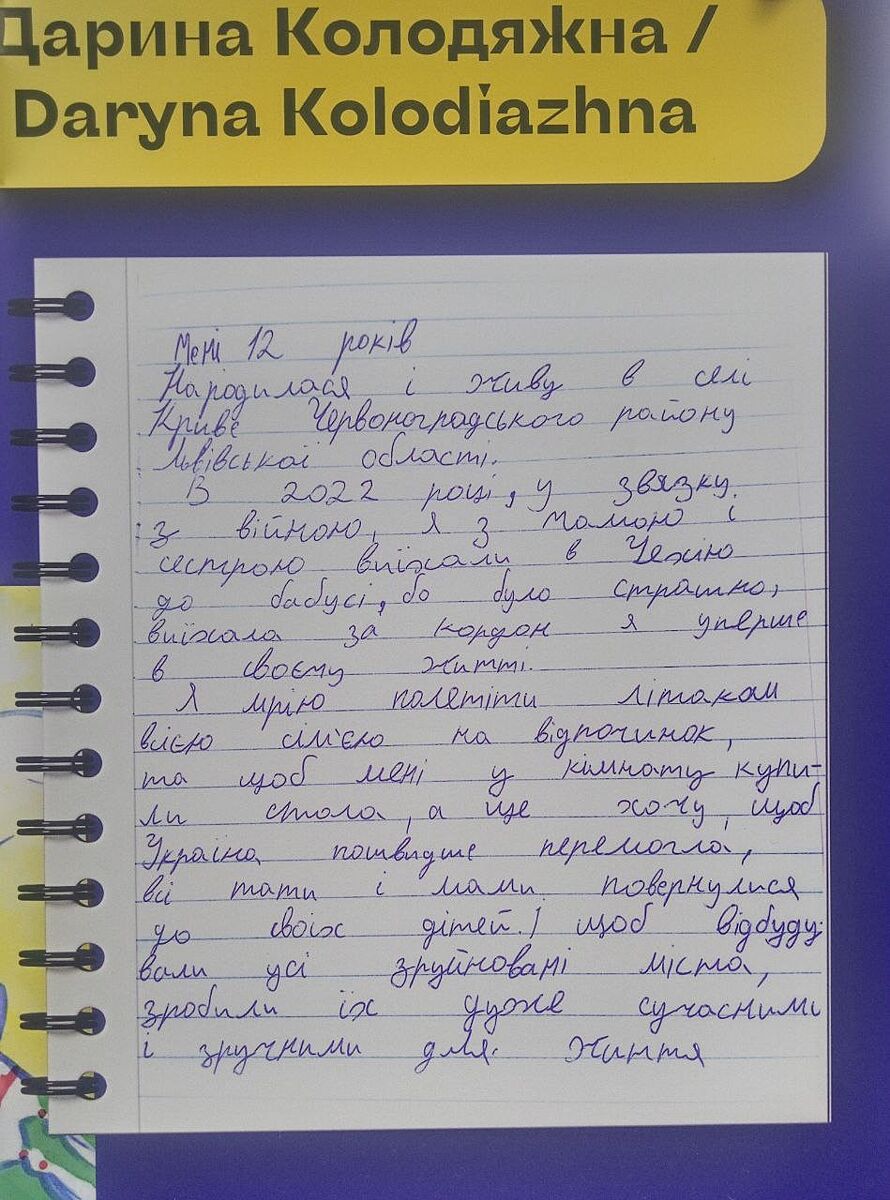 Дарина Колодяжна /
Daryna Kolodiazhna
Мені 12 років
Народилася і живу в селі
Криве Червоноградського району
Львівської області.
В 2022 році, у звязку
з війною, я з мамою і
сестрою виїхали в Чехію
до бабусі, бо було страшно,
виїхала за кордон я уперше
в своєму житті.
Я мрію полетіти літаком
всією сім'єю на відпочинок,
та щоб мені у кімнату купи-
ли стола, а ще хочу, щоб
Україна пошвидше перемогла,
всі тати і мами повернулися
до своїх дітей. І щоб відбуду-
вали усі зруйновані міста,
зробили їх дуже сучасними
і зручними для життя